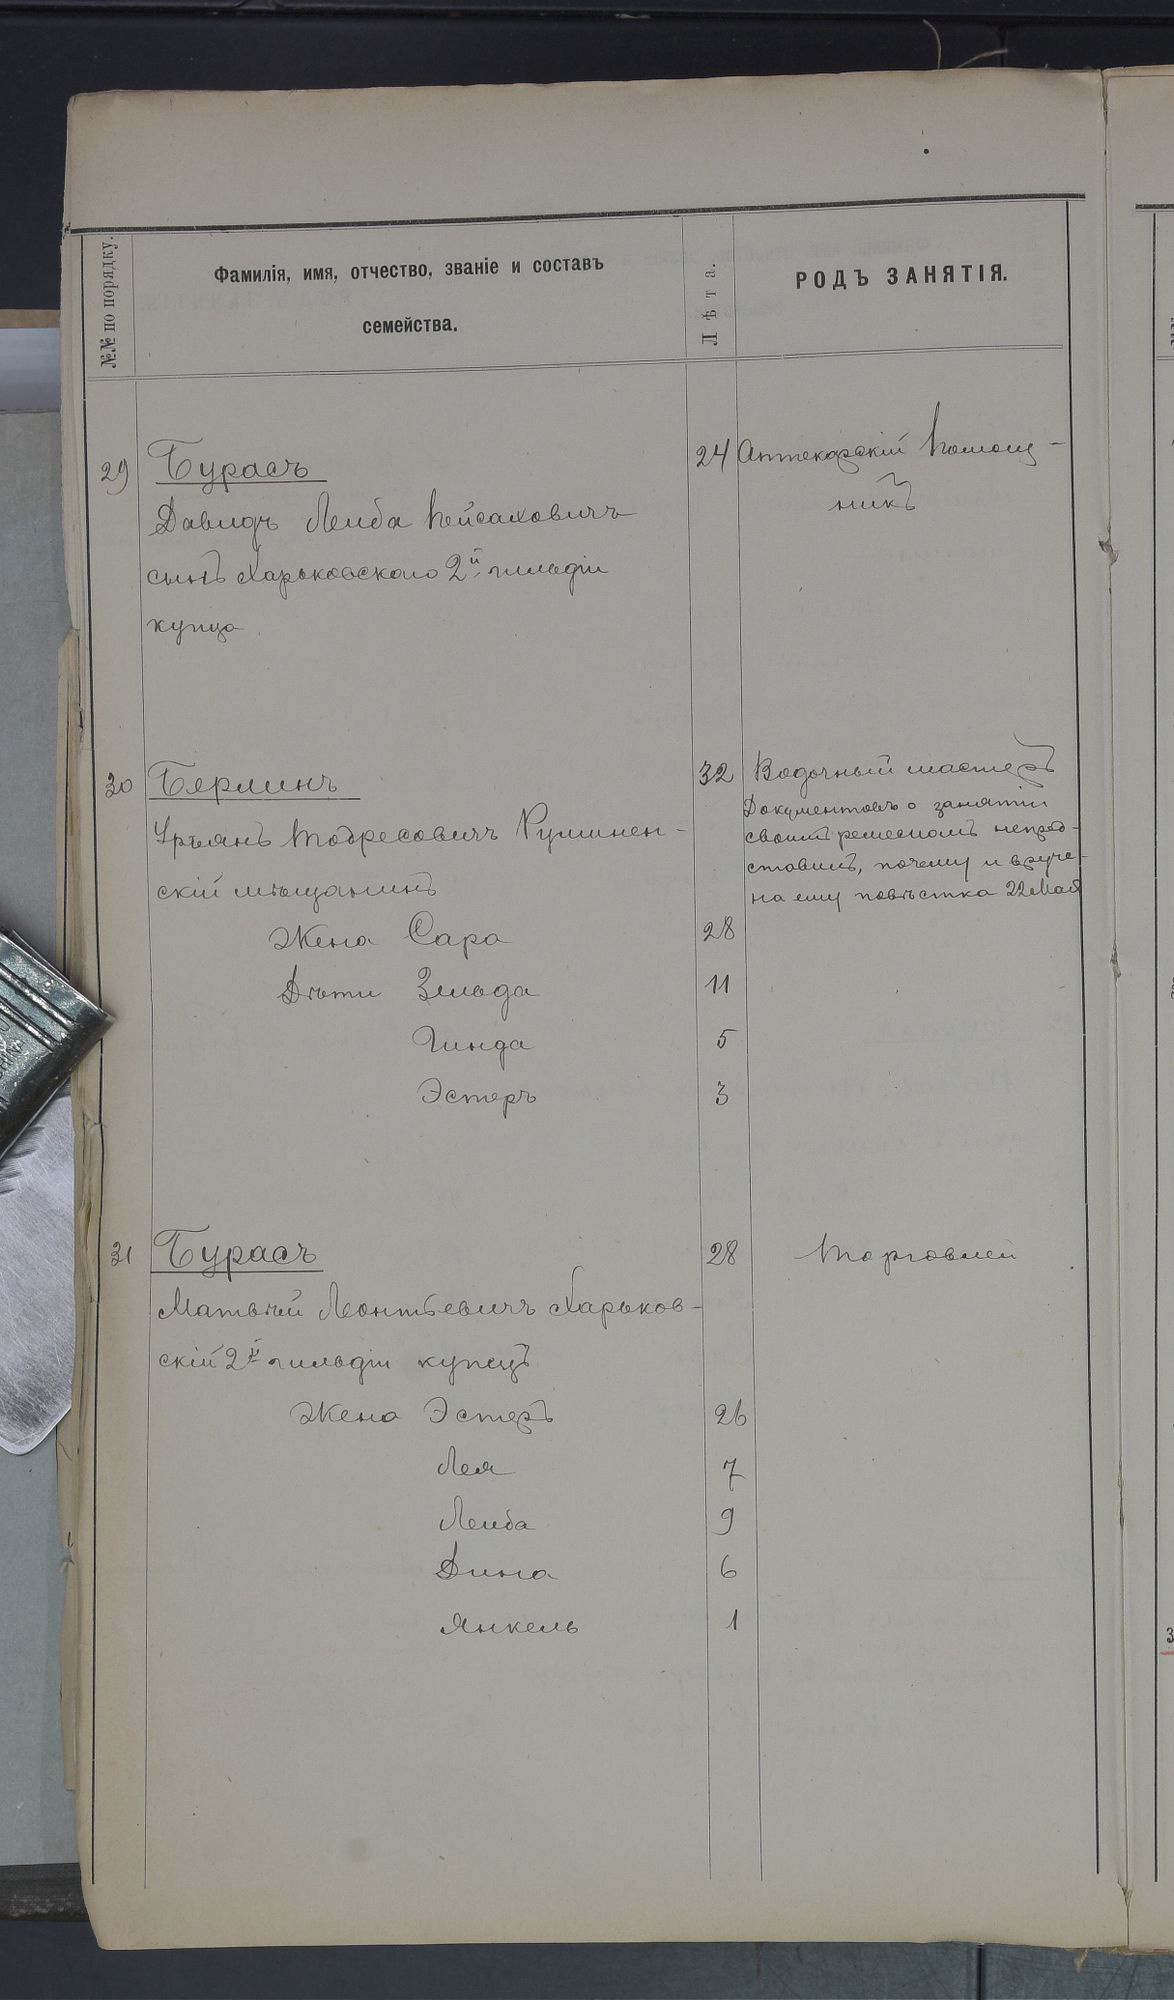 №№ по порядку.
Фамилія, имя, отчество, званіе и составъ
семейства.
Лѣта.
РОДЪ ЗАНЯТІЯ.
29 Бурасъ 24 Аптекарскій помощ-
Давидъ Лейба Пейсаховичъ никъ
сынъ Харьковского 2й гильдіи
купца
30 Берлинъ 32 Водочный мастеръ
Документовъ о занятіи
Тодресовичъ
своимъ ремесломъ непред-
ставилъ, почему и вруче-
скій мѣщанинъ
на ему повѣстка 22 Мая
Жена Сара 28
Дѣти Зельда 11
Гинда 5
Эстеръ 3
31 Бурасъ 28 Торговлей
Матвѣй Леонтьевичъ Харьков-
скій 2й гильдіи купецъ
Жена Эстеръ 26
Лея 7
Лейба 9
Дина 6
Янкель 1